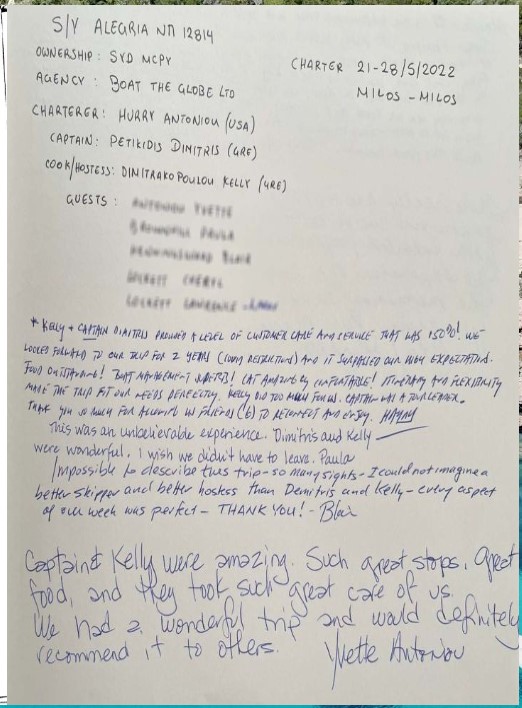 S/Y ALEGRIA NΠ 12814
OWNERSHIP: SYD MCPY
CHARTER 21-28/5/2022
AGENCY: BOAT THE GLOBE LTD
MILOS - MILOS
CHARTERER: HURRY ANTONIOU (USA)
CAPTAIN: PETIKIDIS DIMITRIS (GRE)
COOK/HOSTESS: DIMITRAKOPOULOU KELLY (GRE)
GUESTS:
* KELLY + CAPTAIN DIMITRIS PROVIDED A LEVEL OF CUSTOMER CARE AND SERVICE THAT WAS 150%! WE
LOOKED FORWARD TO OUR TRIP FOR 2 YEARS (COVID RESTRICTIONS) AND IT SURPASSED OUR HIGH EXPECTATION.
FOOD OUTSTANDING! BOAT MANAGEMENT SUPERB! CAT AMAZINGLY COMFORTABLE! ITINERARY AND FLEXIBILITY
MADE THE TRIP FIT OUR NEEDS PERFECTLY. KELLY DID TOO MUCH FOR US. CAPTAIN WAS A TOUR LEADER.
THANK YOU SO MUCH FOR ALLOWING US FRIENDS (6) TO RECONNECT AND ENJOY.
This was an unbelievable experience. Dimitris and Kelly
were wonderful. I wish we didn't have to leave. Paula
Impossible to describe this trip - so many sights - I could not imagine a
better skipper and better hostess than Demitris and Kelly - every aspect
of our week was perfect - THANK YOU! - Blair
Captain & Kelly were amazing. Such great stops, great
food, and they took such great care of us.
We had a wonderful trip and would definitely
recommend it to others. Yvette Antoniou